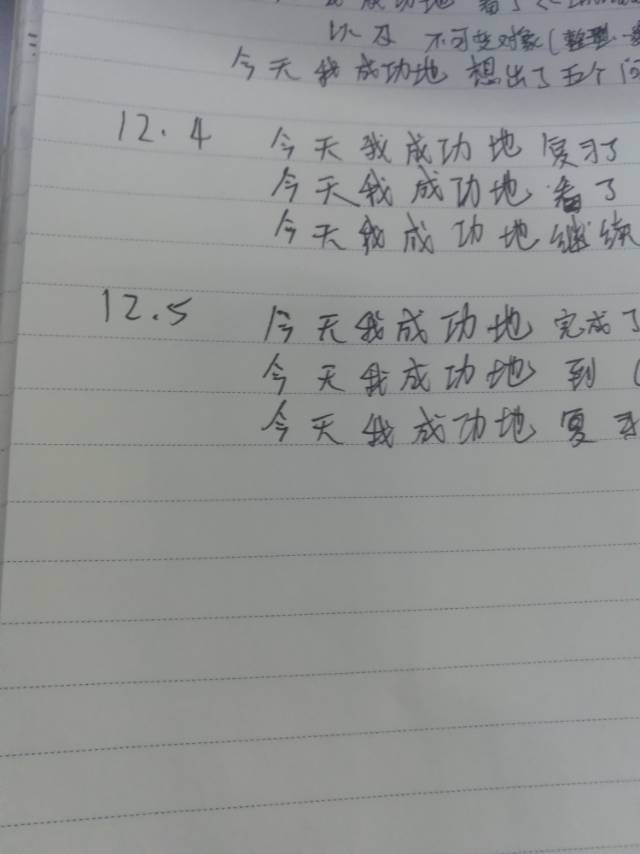 成功地 看了
以及 不可变对象(整型、
今天我成功地 想出了五个问
12.4 今天我成功地 复习了
今天我成功地 看了
今天我成功地 继续
12.5 今天我成功地 完成了
今天我成功地 到(
今天我成功地 复习